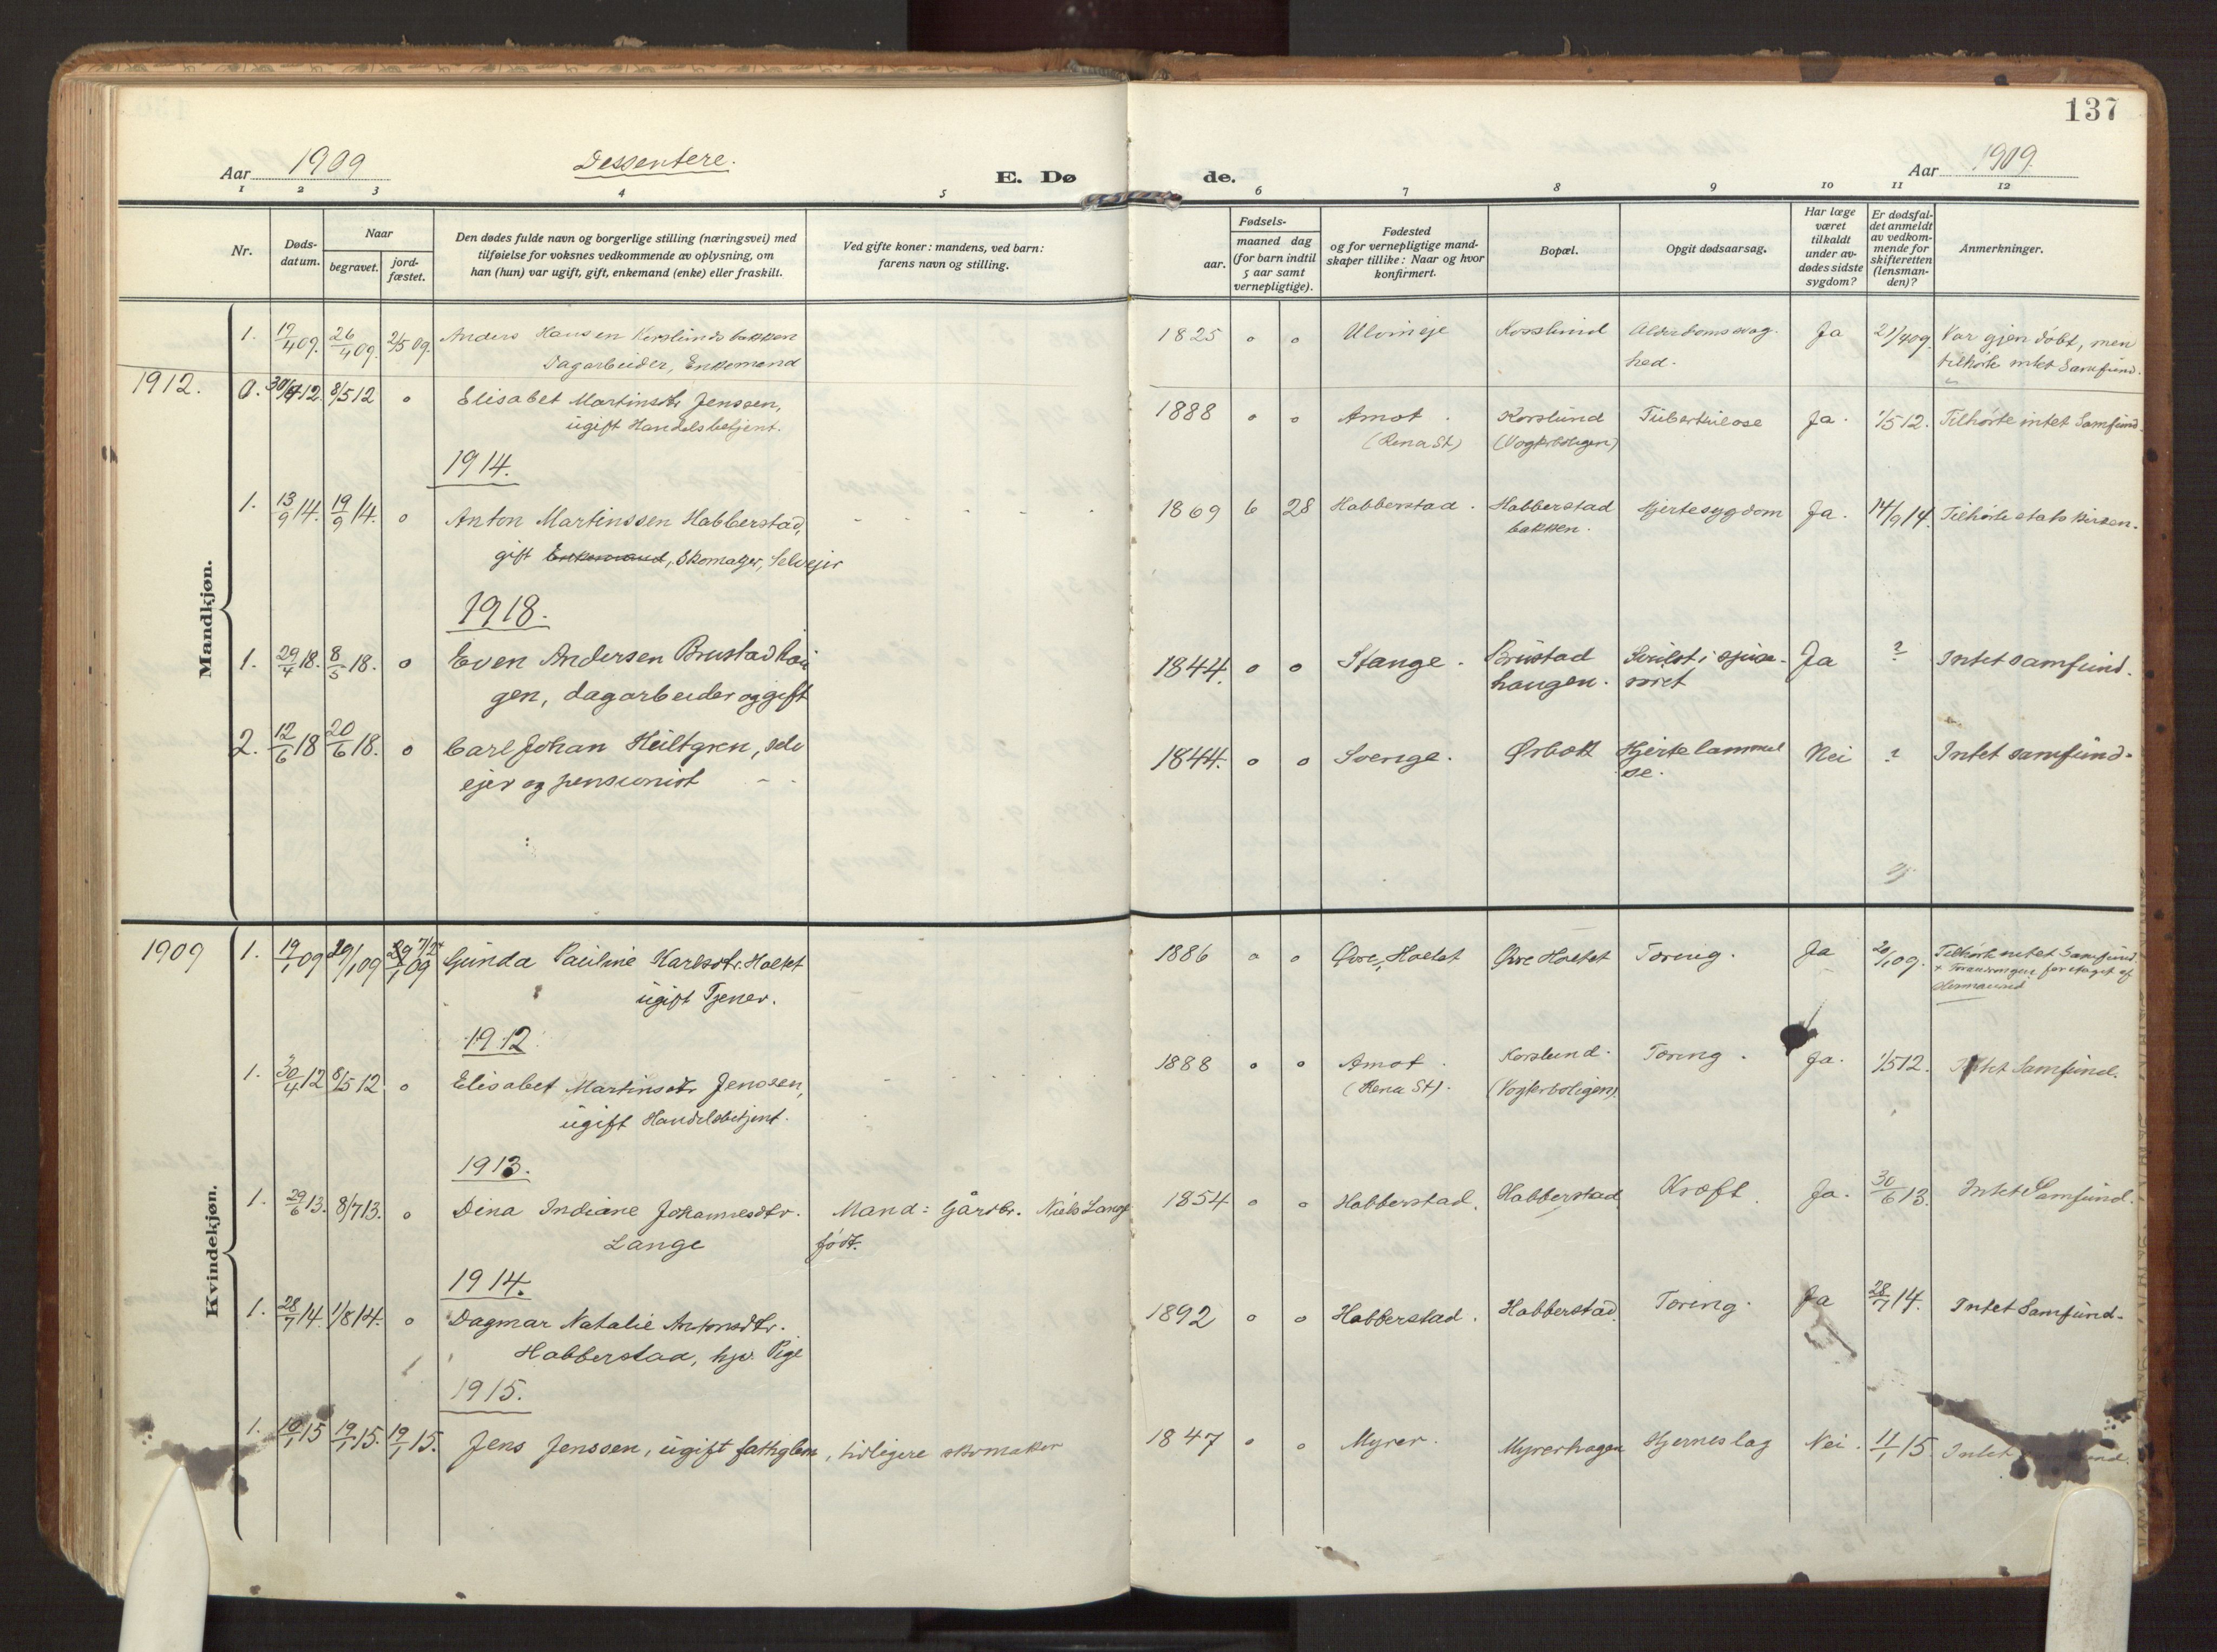 137
Aar 1909 Dessentere. E. Dø de. Aar 1909.
1 2 3 4 5 6 7 8 9 10 11 12
Nr.
Døds-
datum.
Naar
begravet.
jord-
fæstet.
Den dødes fulde navn og borgerlige stilling (næringsvei) med
tilføielse for voksnes vedkommende av oplysning, om
han (hun) var ugift, gift, enkemand (enke) eller fraskilt.
Ved gifte koner: mandens, ved barn:
farens navn og stilling.
Fødsels-
aar.
maaned dag
(for barn indtil
5 aar samt
vernepligtige).
Fødested
og for vernepligtige mand-
skaper tillike: Naar og hvor
konfirmert.
Bopæl.
Opgit dødsaarsag.
Har læge
været
tilkaldt
under av-
dødes sidste
sygdom?
Er dødsfal-
det anmeldt
av vedkom-
mende for
skifteretten
(lensman-
den)?
Anmerkninger.
Mandkjøn.
1. 17/4 09. 26/4 09. 2/5 09. Anders Hansen Korslundsbakken 1825 o o Korslund Alderdomssvag- Ja 21/4 09. Var gjendøbt, men
Dagarbeider, Enkemand hed. tilhørte intet Samfund.
1912. 0. 30/4 12. 8/5 12 o Elisabet Martinsdtr Jenssen, 1888 o o Amot. Korslund Tuberkulose Ja. 1/5 12. Tilhørte intet Samfund.
ugift Handelsbetjent. (Rena St) (Vogterboligen)
1914.
1. 13/9 14. 19/9 14. o Anton Martinssen Habberstad, 1869 6 28 Habberstad. Habberstad Hjertesygdom Ja. 14/9 14. Tilhørte statskirken.
gift Enkemand, Skomager, Selvejer bakken.
1918.
1. 29/4 18. 8/5 18. o Even Andersen Brustadhau 1844. o o Stange. Brustad Svulst i spise- Ja ? Intet samfund.
gen, dagarbeider og gift haugen. røret
2. 12/6 18 20/6 18. o Carl Johan Hultgren, selv 1844. o o Sverige. Ørbæk Hjertelammel Nei ? Intet samfund.
ejer og pensionist se.
Kvindekjøn.
1909 1. 19/1 09 29/1 09 29/1 09 Gunda Pauline Karlsdtr. Holtet 1886 o o Øvre Holtet Øvre Holtet Tæring. Ja 20/1 09. Tilhørte intet Samfund.
ugift Tjener. + Forandringen foretaget af
1912.
1. 30/4 12 8/5 12. o Elisabet Martinsdtr Jenssen, 1888 o o Amot. Korslund. Tæring. Ja. 1/5 12. Intet Samfund.
ugift Handelsbetjent. (Rena St). (Vogterboligen).
1913.
1. 29/6 13. 8/7 13. o Dina Indiane Johannesdtr. Mand: Gårdbr. Niels Lange 1854 o o Habberstad. Habberstad Kræft. Ja. 30/6 13. Intet Samfund.
Lange født.
1914.
1. 28/7 14. 1/8 14. o Dagmar Natalie Antonsdtr. 1892 o o Habberstad. Habberstad. Tæring. Ja 28/7 14. Intet Samfund.
Habberstad, hjv. Pige
1915.
1. 10/1 15 19/1 15. 19/1 15. Jens Jenssen, ugift fattiglem, tidligere skomaker 1847 o o Myrer. Myrerhagen Hjerneslag Nei. 11/1 15. Intet